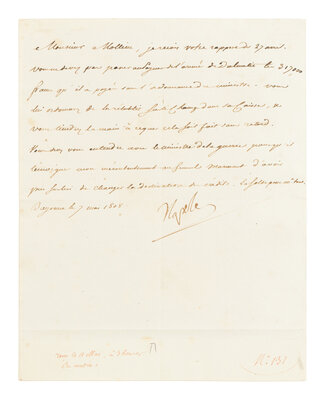 Monsieur Mollien, je reçois votre rapport du 27 avril.
Vous ne devez pas passer au payeur de l'armée de Dalmatie les 37,000
francs qu'il a payés sans l'ordonnance du ministre. Vous
lui ordonnerez de les rétablir sur le champ dans sa Caisse, &
vous tiendrez la main à ce que cela soit fait sans retard.
vous entendre avec le ministre de la guerre pour
témoigner mon mécontentement au Général Marmont d'avoir
pris sur lui de changer la destination de crédits.
Bayonne le 7 mai 1808
Nap
N° 131